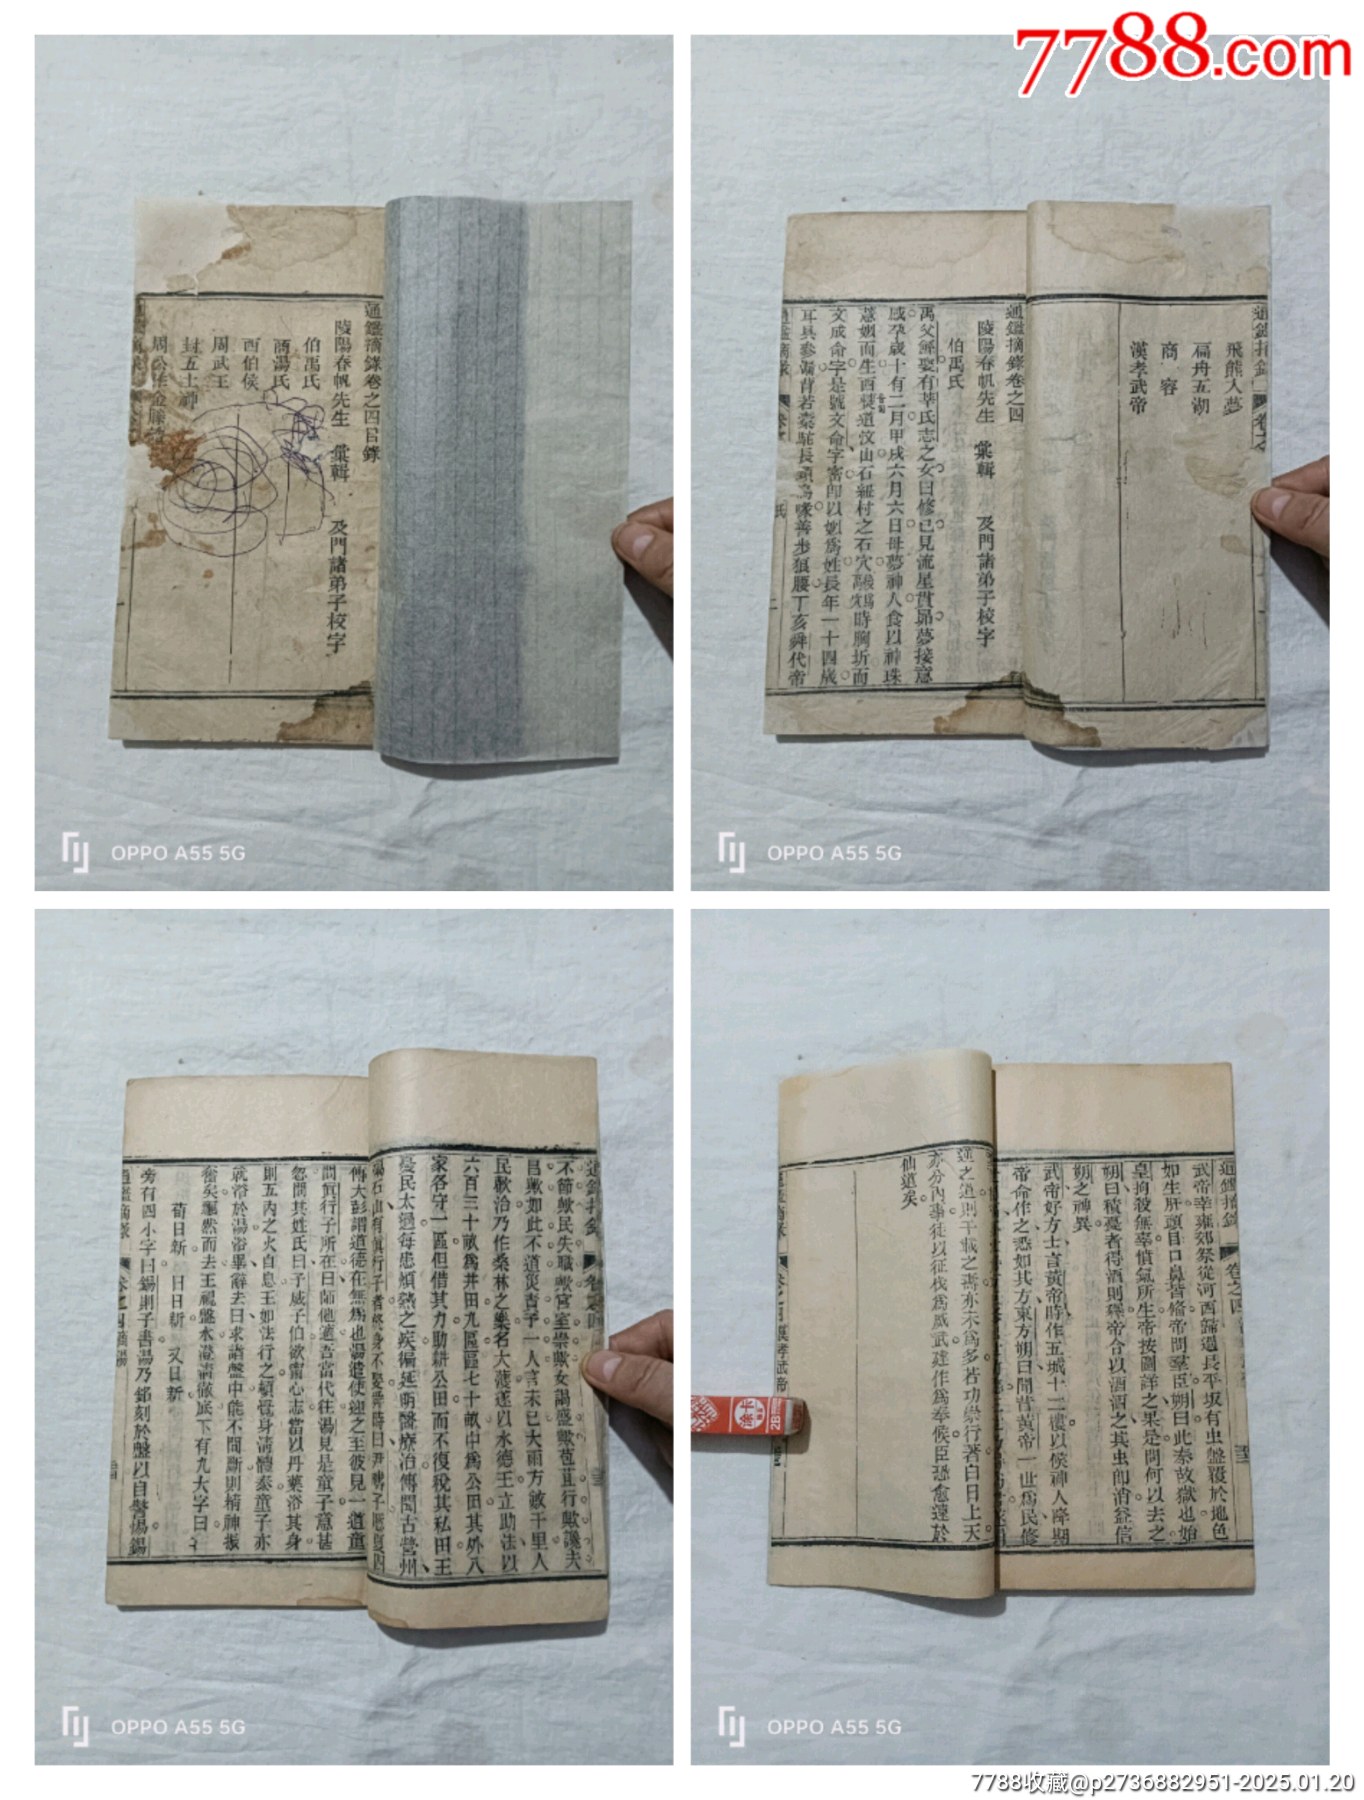 7788.com
通鑑摘錄卷之四目錄
陵陽春帆先生 彙輯 及門諸弟子校字
伯禹氏
商湯氏
西伯侯
周武王
封五土神
周公作金縢
OPPO A55 5G
飛熊入夢
扁舟五湖
商容
漢孝武帝
通鑑摘錄卷之四
陵陽春帆先生 彙輯 及門諸弟子校字
伯禹氏
禹父鯀娶有莘氏志之女曰修己見流星貫昴夢接意
感孕歲十有二月甲戌六月六日母夢神人食以神珠
薏苡而生西僰道汶山石紐村之石穴
文成命字是號文命字高密以姒爲姓長年一十四歲
OPPO A55 5G
不節歟民失職歟宮室崇歟女謁盛歟苞苴行歟讒夫
昌歟如此不道災眚予一人言未已大雨方數千里人
民歡洽乃作桑林之樂名大濩遂以水德王立助法以
六百三十畝爲井田九區區七十畝中爲公田其外八
家各守一區但借其力助耕公田而不復稅其私田王
憂民太過每患煩熱之疾徧延明醫療治傳聞古營州
傳大彭謂道德在無爲也湯遣使迎之至彼見一道童
問眞行子所在曰師他適吾當代往湯見是童子意甚
忽問其姓氏曰予威子伯欲甯心志當以丹藥浴其身
則五內之火自息王如法行之頓覺身淸體泰童子亦
就浴於湯帝畢辭去曰求諸盤中能不間斷則精神振
奮矣飄然而去王視盤水澄淸徹底下有九大字曰
苟日新 日日新 又日新
旁有四小字曰錫則子書湯乃銘刻於盤以自警惕錫
OPPO A55 5G
通鑑摘錄 卷之四
武帝幸雍郊祭從河西歸過長平坂有虫盤覆於地色
如生肝頭目口鼻皆備帝問羣臣朔曰此秦故獄也始
皇拘殺無辜憤氣所生帝按圖詳之果是問何以去之
朔曰積憂者得酒則釋帝令以酒洒之其虫卽消益信
朔之神異
武帝好方士言黃帝時作五城十二樓以候神人降期
帝命作之悉如其方東方朔曰聞昔黃帝一世爲民修
達之道則千載之壽亦未爲多若功崇行著白日上天
亦分內事徒以征伐爲威武建作爲奉候臣恐愈遠於
仙道矣
OPPO A55 5G
7788收藏@p2736882951-2025.01.20